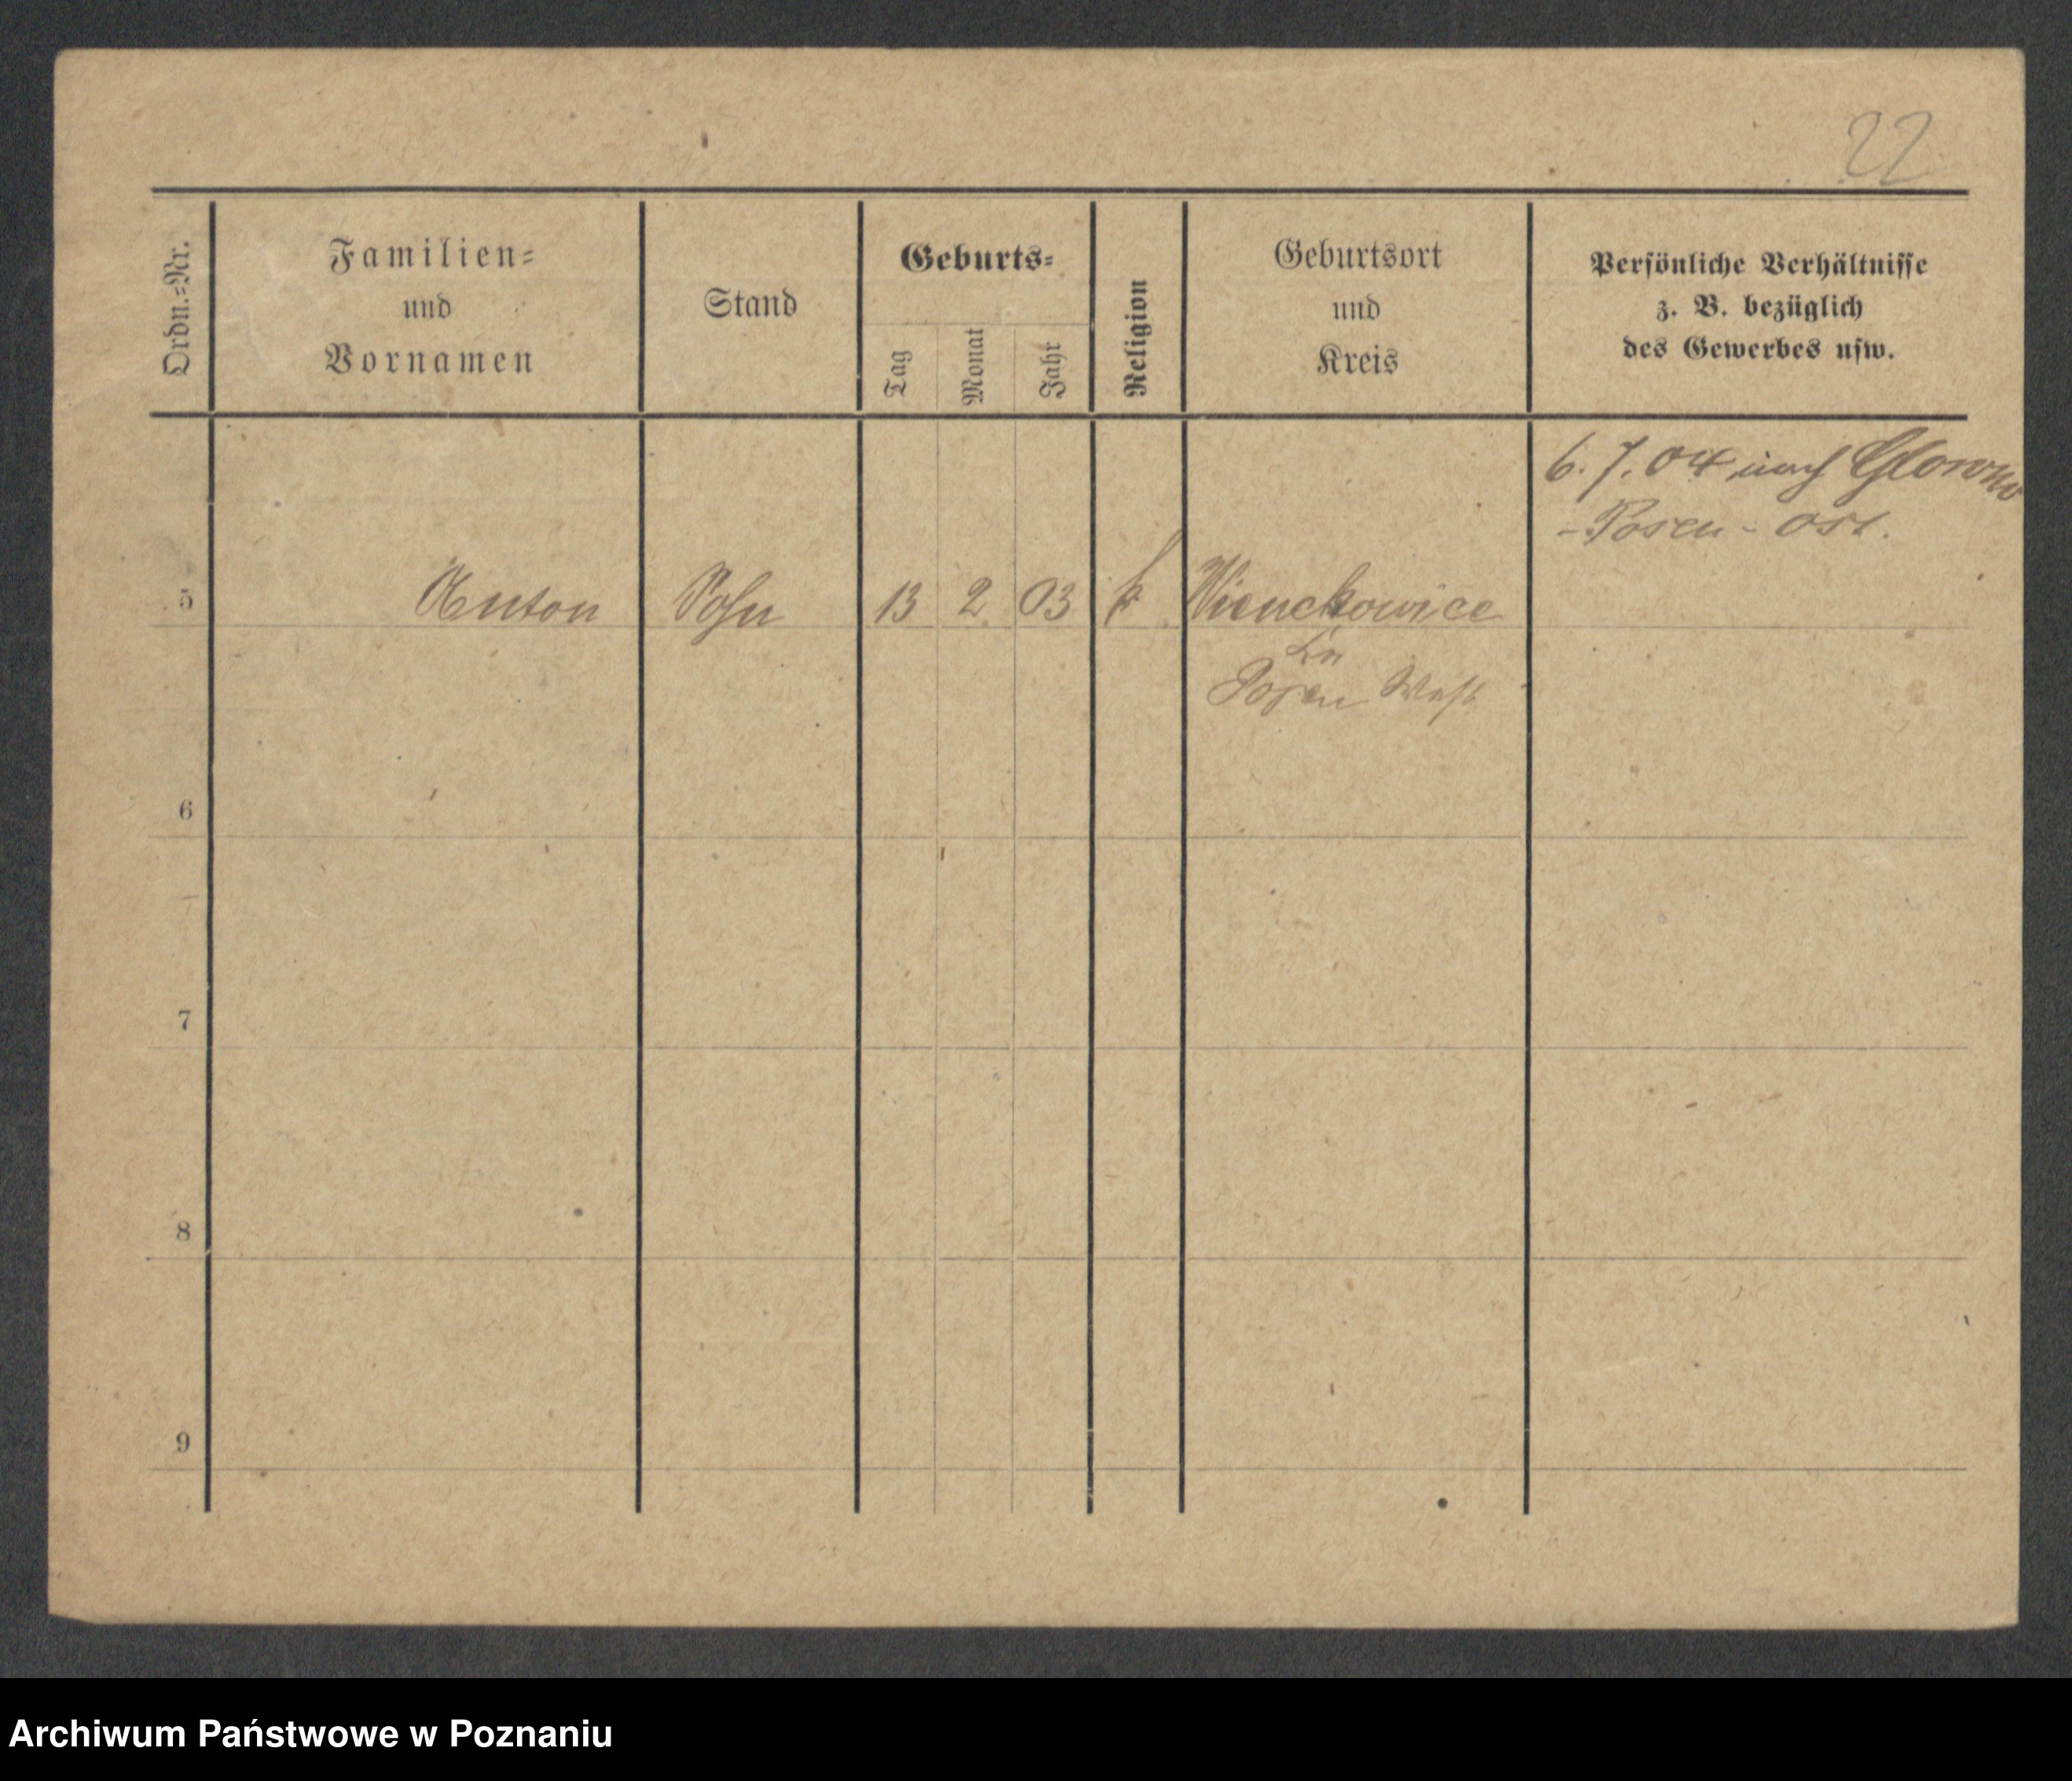 22
Ordn.-Nr.
Familien-
und
Vornamen
Stand
Geburts-
Tag
Monat
Jahr
Religion
Geburtsort
und
Kreis
Persönliche Verhältnisse
z. B. bezüglich
des Gewerbes usw.
6. 7. 04 nach Glowno
- Posen - Ost.
5 Anton Sohn 13 2 03 k Wienckowice
Kr
Posen West
6
7
8
9
Archiwum Państwowe w Poznaniu